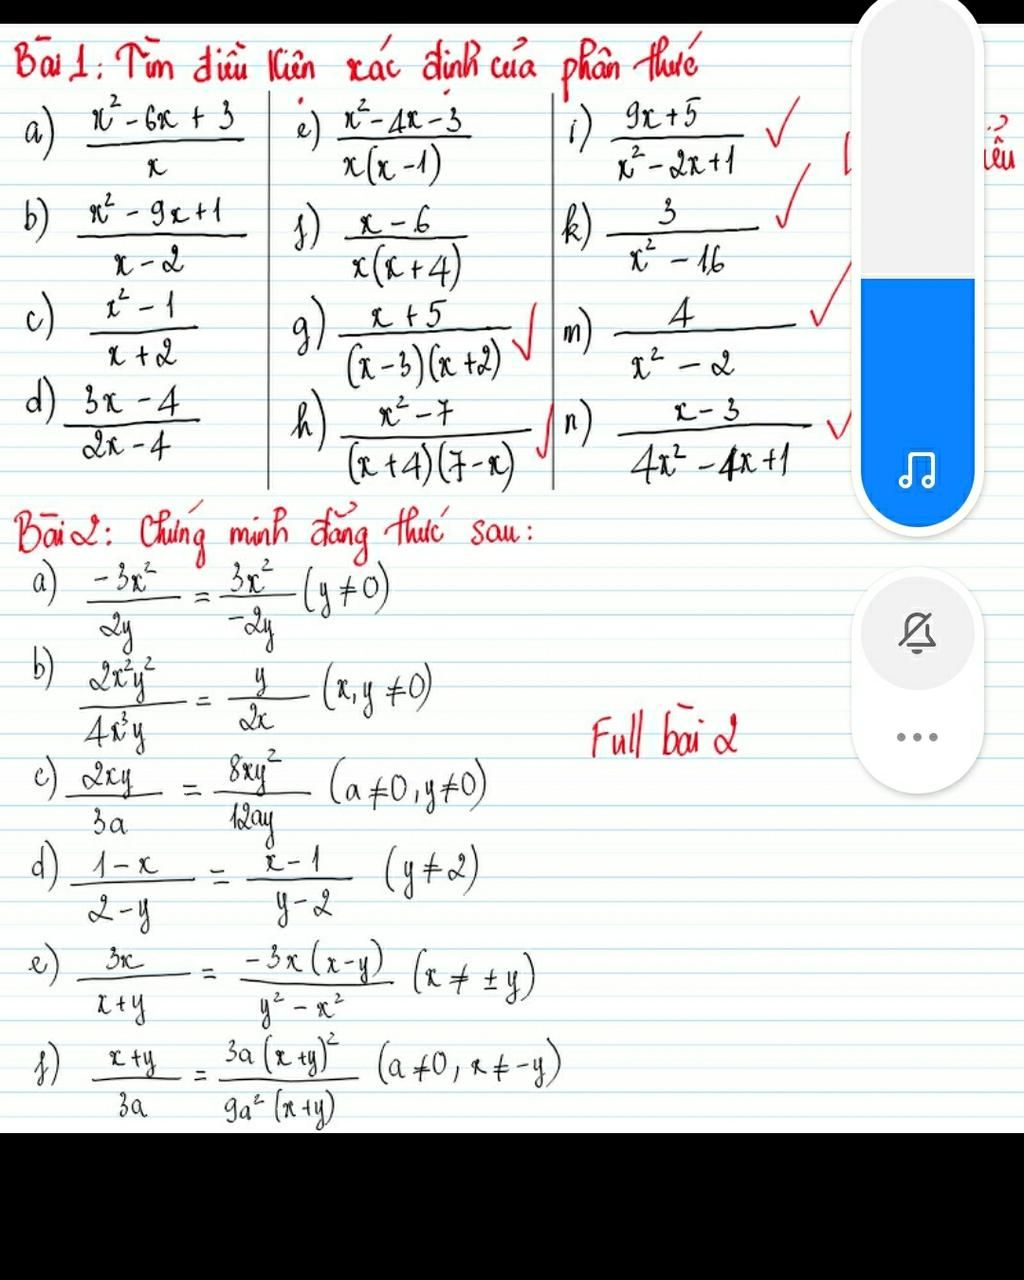 Bài 1: Tìm điều kiện xác định của phân thức
a) (x² - 6x + 3)/x
b) (x² - 9x + 1)/(x - 2)
c) (x² - 1)/(x + 2)
d) (3x - 4)/(2x - 4)
e) (x² - 4x - 3)/(x(x - 1))
f) (x - 6)/(x(x + 4))
g) (x + 5)/((x - 3)(x + 2)) ✓
h) (x² - 7)/((x + 4)(7 - x)) ✓
i) (9x + 5)/(x² - 2x + 1) ✓
k) 3/(x² - 16) ✓
m) 4/(x² - 2) ✓
n) (x - 3)/(4x² - 4x + 1) ✓
Bài 2: Chứng minh đẳng thức sau:
a) (-3x²)/(2y) = (3x²)/(-2y) (y ≠ 0)
b) (2x²y²)/(4x³y) = y/(2x) (x, y ≠ 0)
Full bài 2
c) (2xy)/(3a) = (8xy²)/(12ay) (a ≠ 0, y ≠ 0)
d) (1 - x)/(2 - y) = (x - 1)/(y - 2) (y ≠ 2)
e) (3x)/(x + y) = (-3x(x - y))/(y² - x²) (x ≠ ± y)
f) (x + y)/(3a) = (3a(x + y)²)/(9a²(x + y)) (a ≠ 0, x ≠ -y)